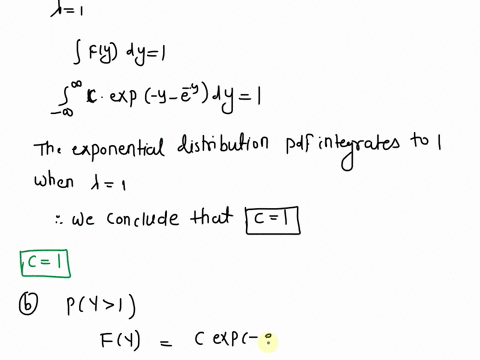 λ=1
∫ F(y) dy=1
∫_{-∞}^{∞} C. exp (-y-e^{-y}) dy=1
The exponential distribution pdf integrates to 1
when λ=1
∴ We conclude that C=1
C=1
ⓑ P(Y>1)
F(Y) = C exp(-